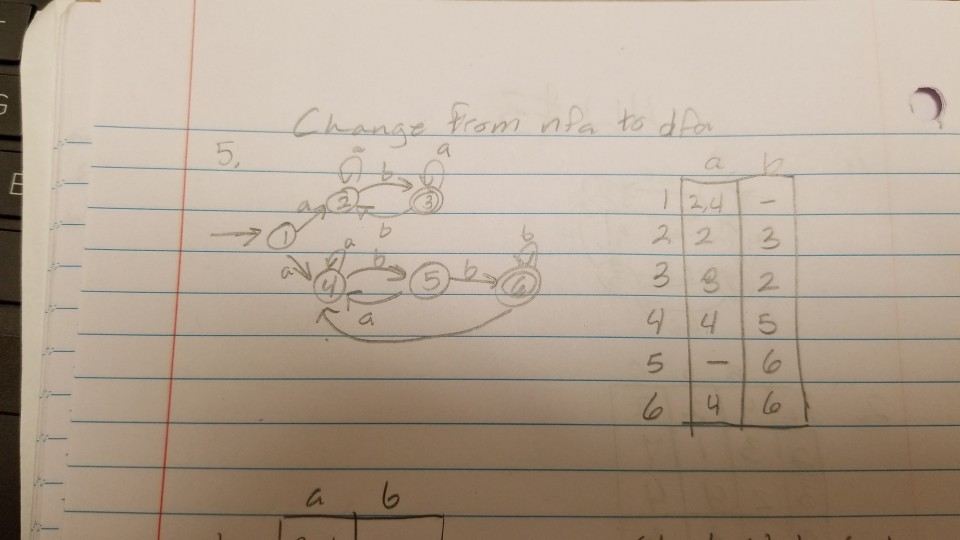 Change from nfa to dfa
5.
a
b
a
b
1
2
3
a
b
a
a
b
b
b
4
5
6
a
a b
1 2,4 -
2 2 3
3 3 2
4 4 5
5 - 6
6 4 6
a b